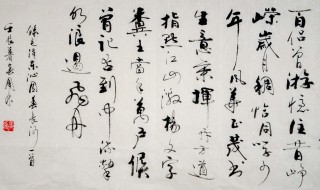 百侣曾游忆往昔峥
嵘岁月稠恰同学少
年风华正茂书
生意气挥斥方遒
指点江山激扬文字
粪土当年万户侯
曾记否到中流击
水浪遏飞舟
录毛泽东沁园春长沙一首